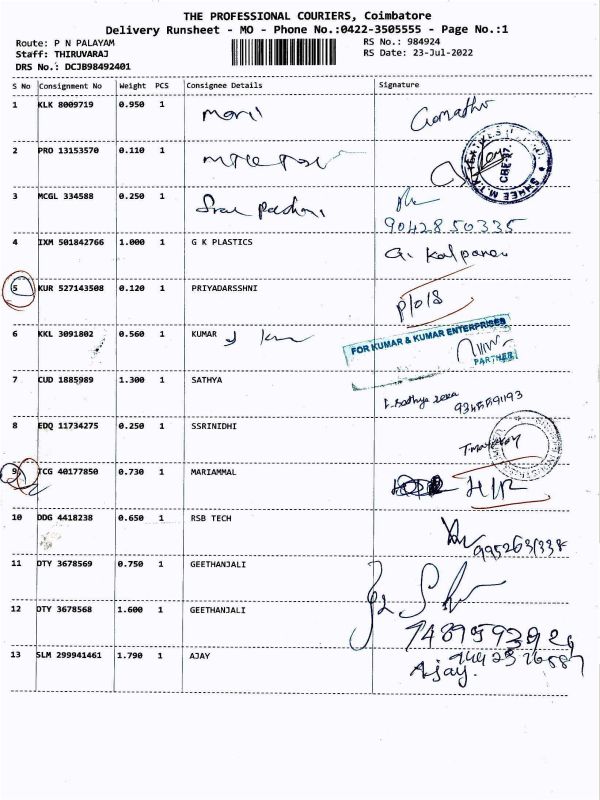 THE PROFESSIONAL COURIERS, Coimbatore
Delivery Runsheet - MO - Phone No.:0422-3505555 - Page No.:1
Route: P N PALAYAM
RS No.: 984924
Staff: THIRUVARAJ
RS Date: 23-Jul-2022
DRS No.: DCJB98492401
S No Consignment No Weight PCS Consignee Details Signature
1 KLK 8009719 0.950 1
2 PRO 13153570 0.110 1
3 MCGL 334588 0.250 1
9042850335
4 IXM 501842766 1.000 1 G K PLASTICS G. Kalpana
5 KUR 527143508 0.120 1 PRIYADARSSHNI
6 KKL 3091802 0.560 1 KUMAR
FOR KUMAR & KUMAR ENTERPRISES
PARTNER
7 CUD 1885989 1.300 1 SATHYA
8 EDQ 11734275 0.250 1 SSRINIDHI
9 TCG 40177850 0.730 1 MARIAMMAL
10 DDG 4418238 0.650 1 RSB TECH
11 DTY 3678569 0.750 1 GEETHANJALI
12 DTY 3678568 1.600 1 GEETHANJALI
13 SLM 299941461 1.790 1 AJAY Ajay.